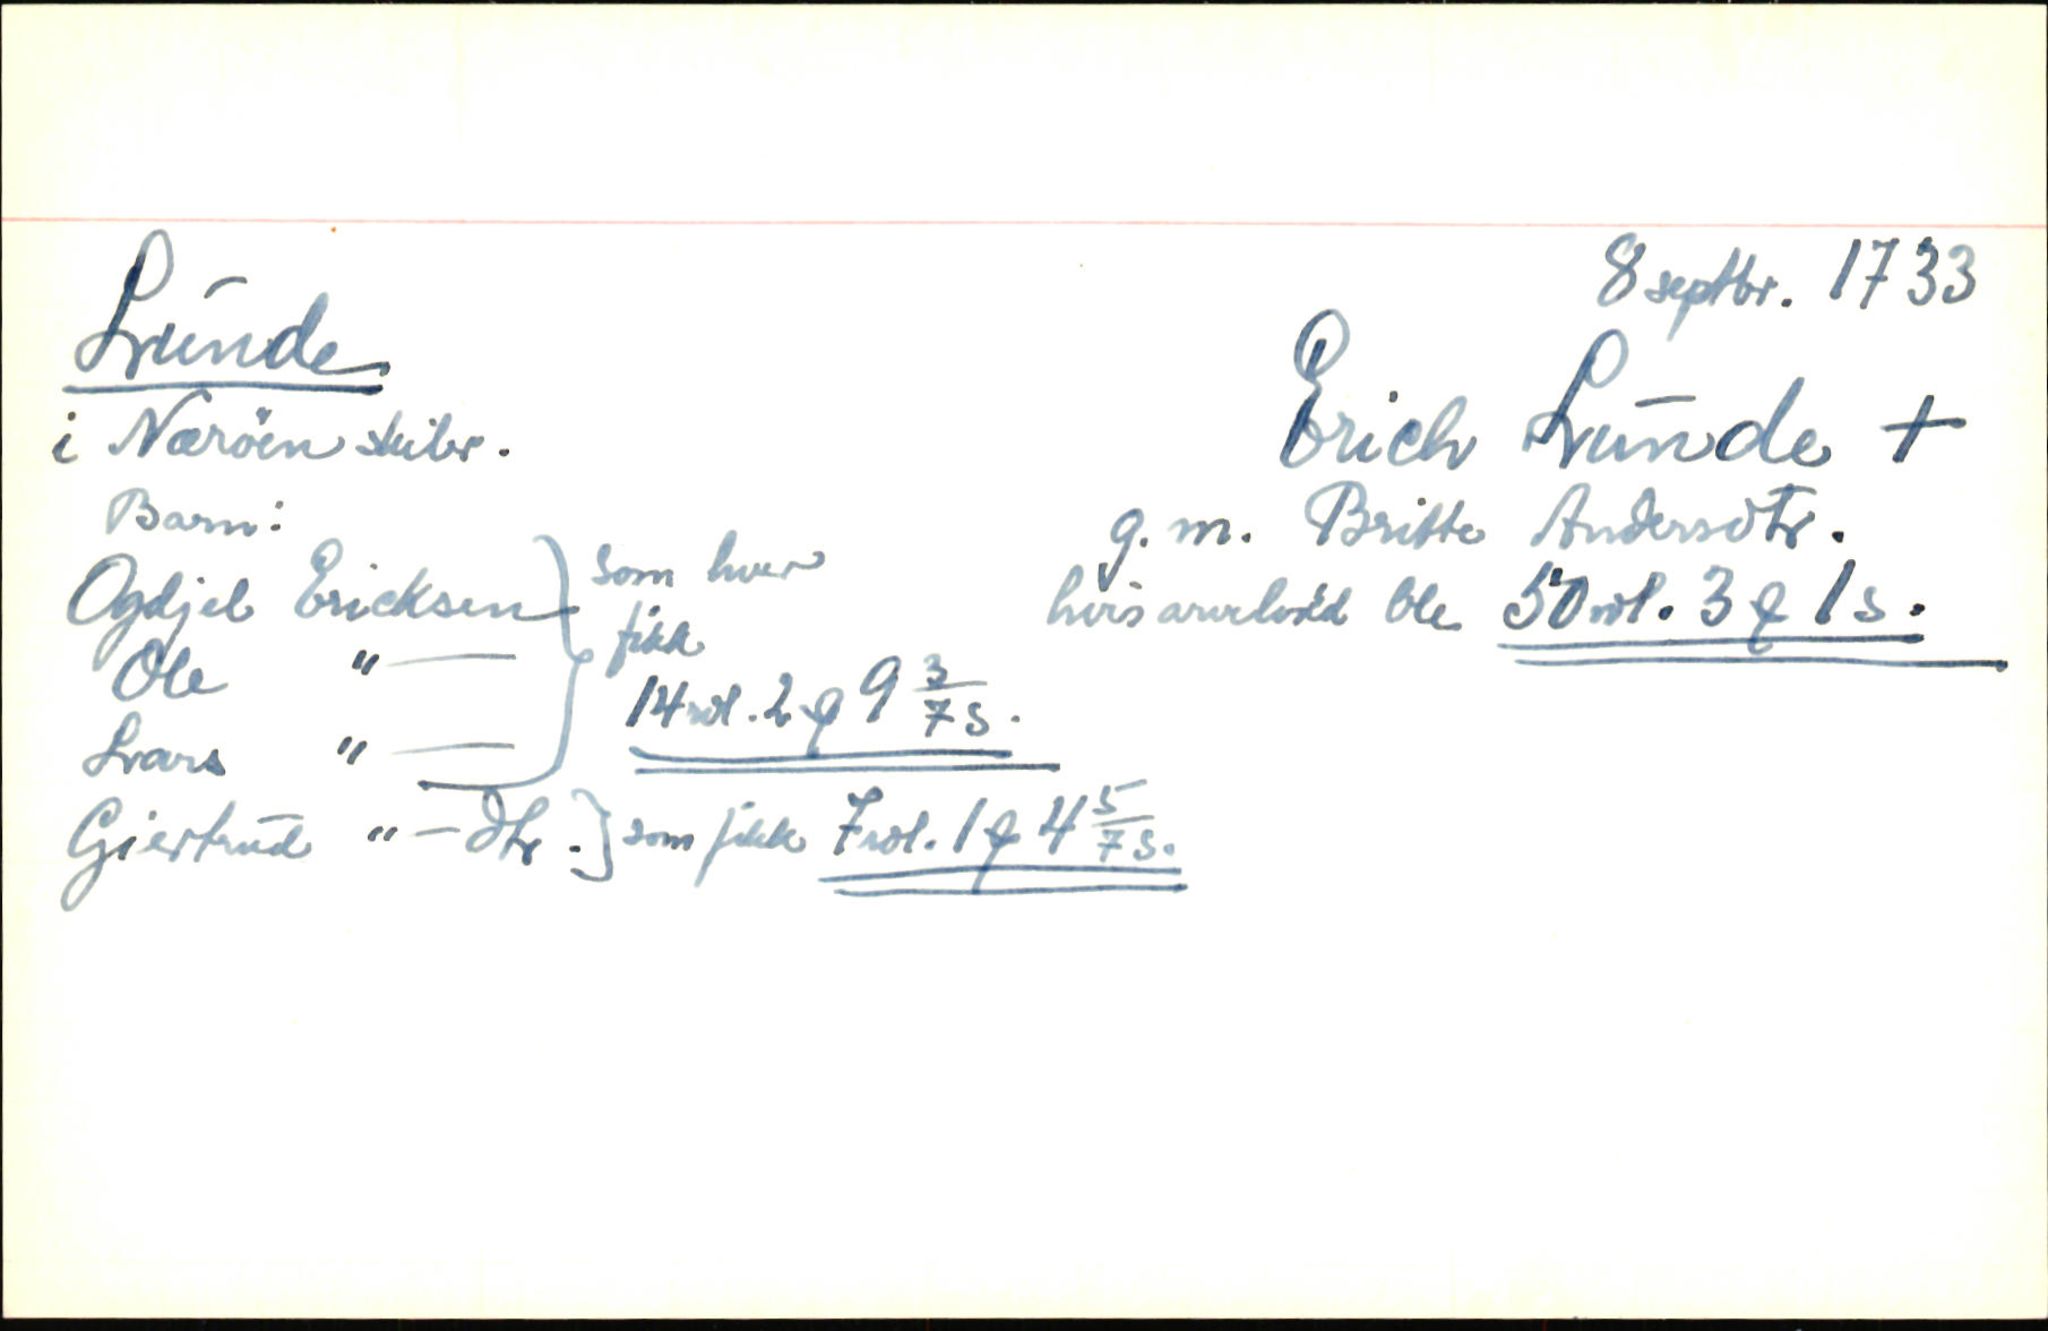 8 septbr. 1733
Lunde
i Næröen skibr.
Erich Lunde +
g. m. Britte Andersdtr.
hvis arvelodd ble 50 rdl. 3 q 1 s.
Barn:
Ogdjel Ericksen } som hver
Ole " — } fikk
Lars " — } 14 rdl. 2 q 9 3/7 s.
Giertrud " — dtr. } som fikk 7 rdl. 1 q 4 5/7 s.